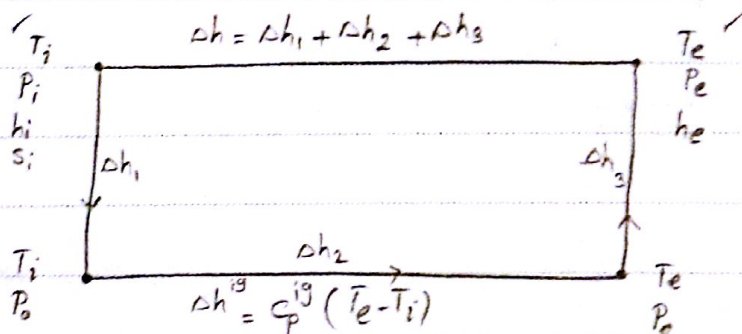 Δh = Δh₁ + Δh₂ + Δh₃
Tᵢ
Pᵢ
hᵢ
sᵢ
Tₑ
Pₑ
hₑ
Δh₁
Δh₃
Δh₂
Tᵢ
P₀
Δhⁱᵍ = Cₚⁱᵍ (Tₑ - Tᵢ)
Tₑ
P₀